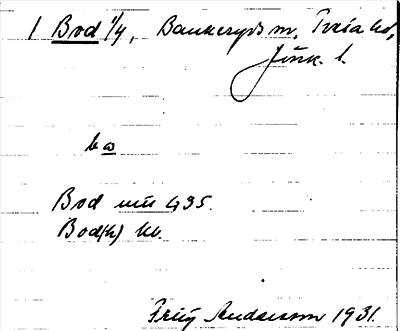 1 Bod 1/4, Bankeryds sn, Tveta hd,
Jönk. l.
bω
Bod uus G35.
Bod(h) kb.
Fritz Andersson 1931.